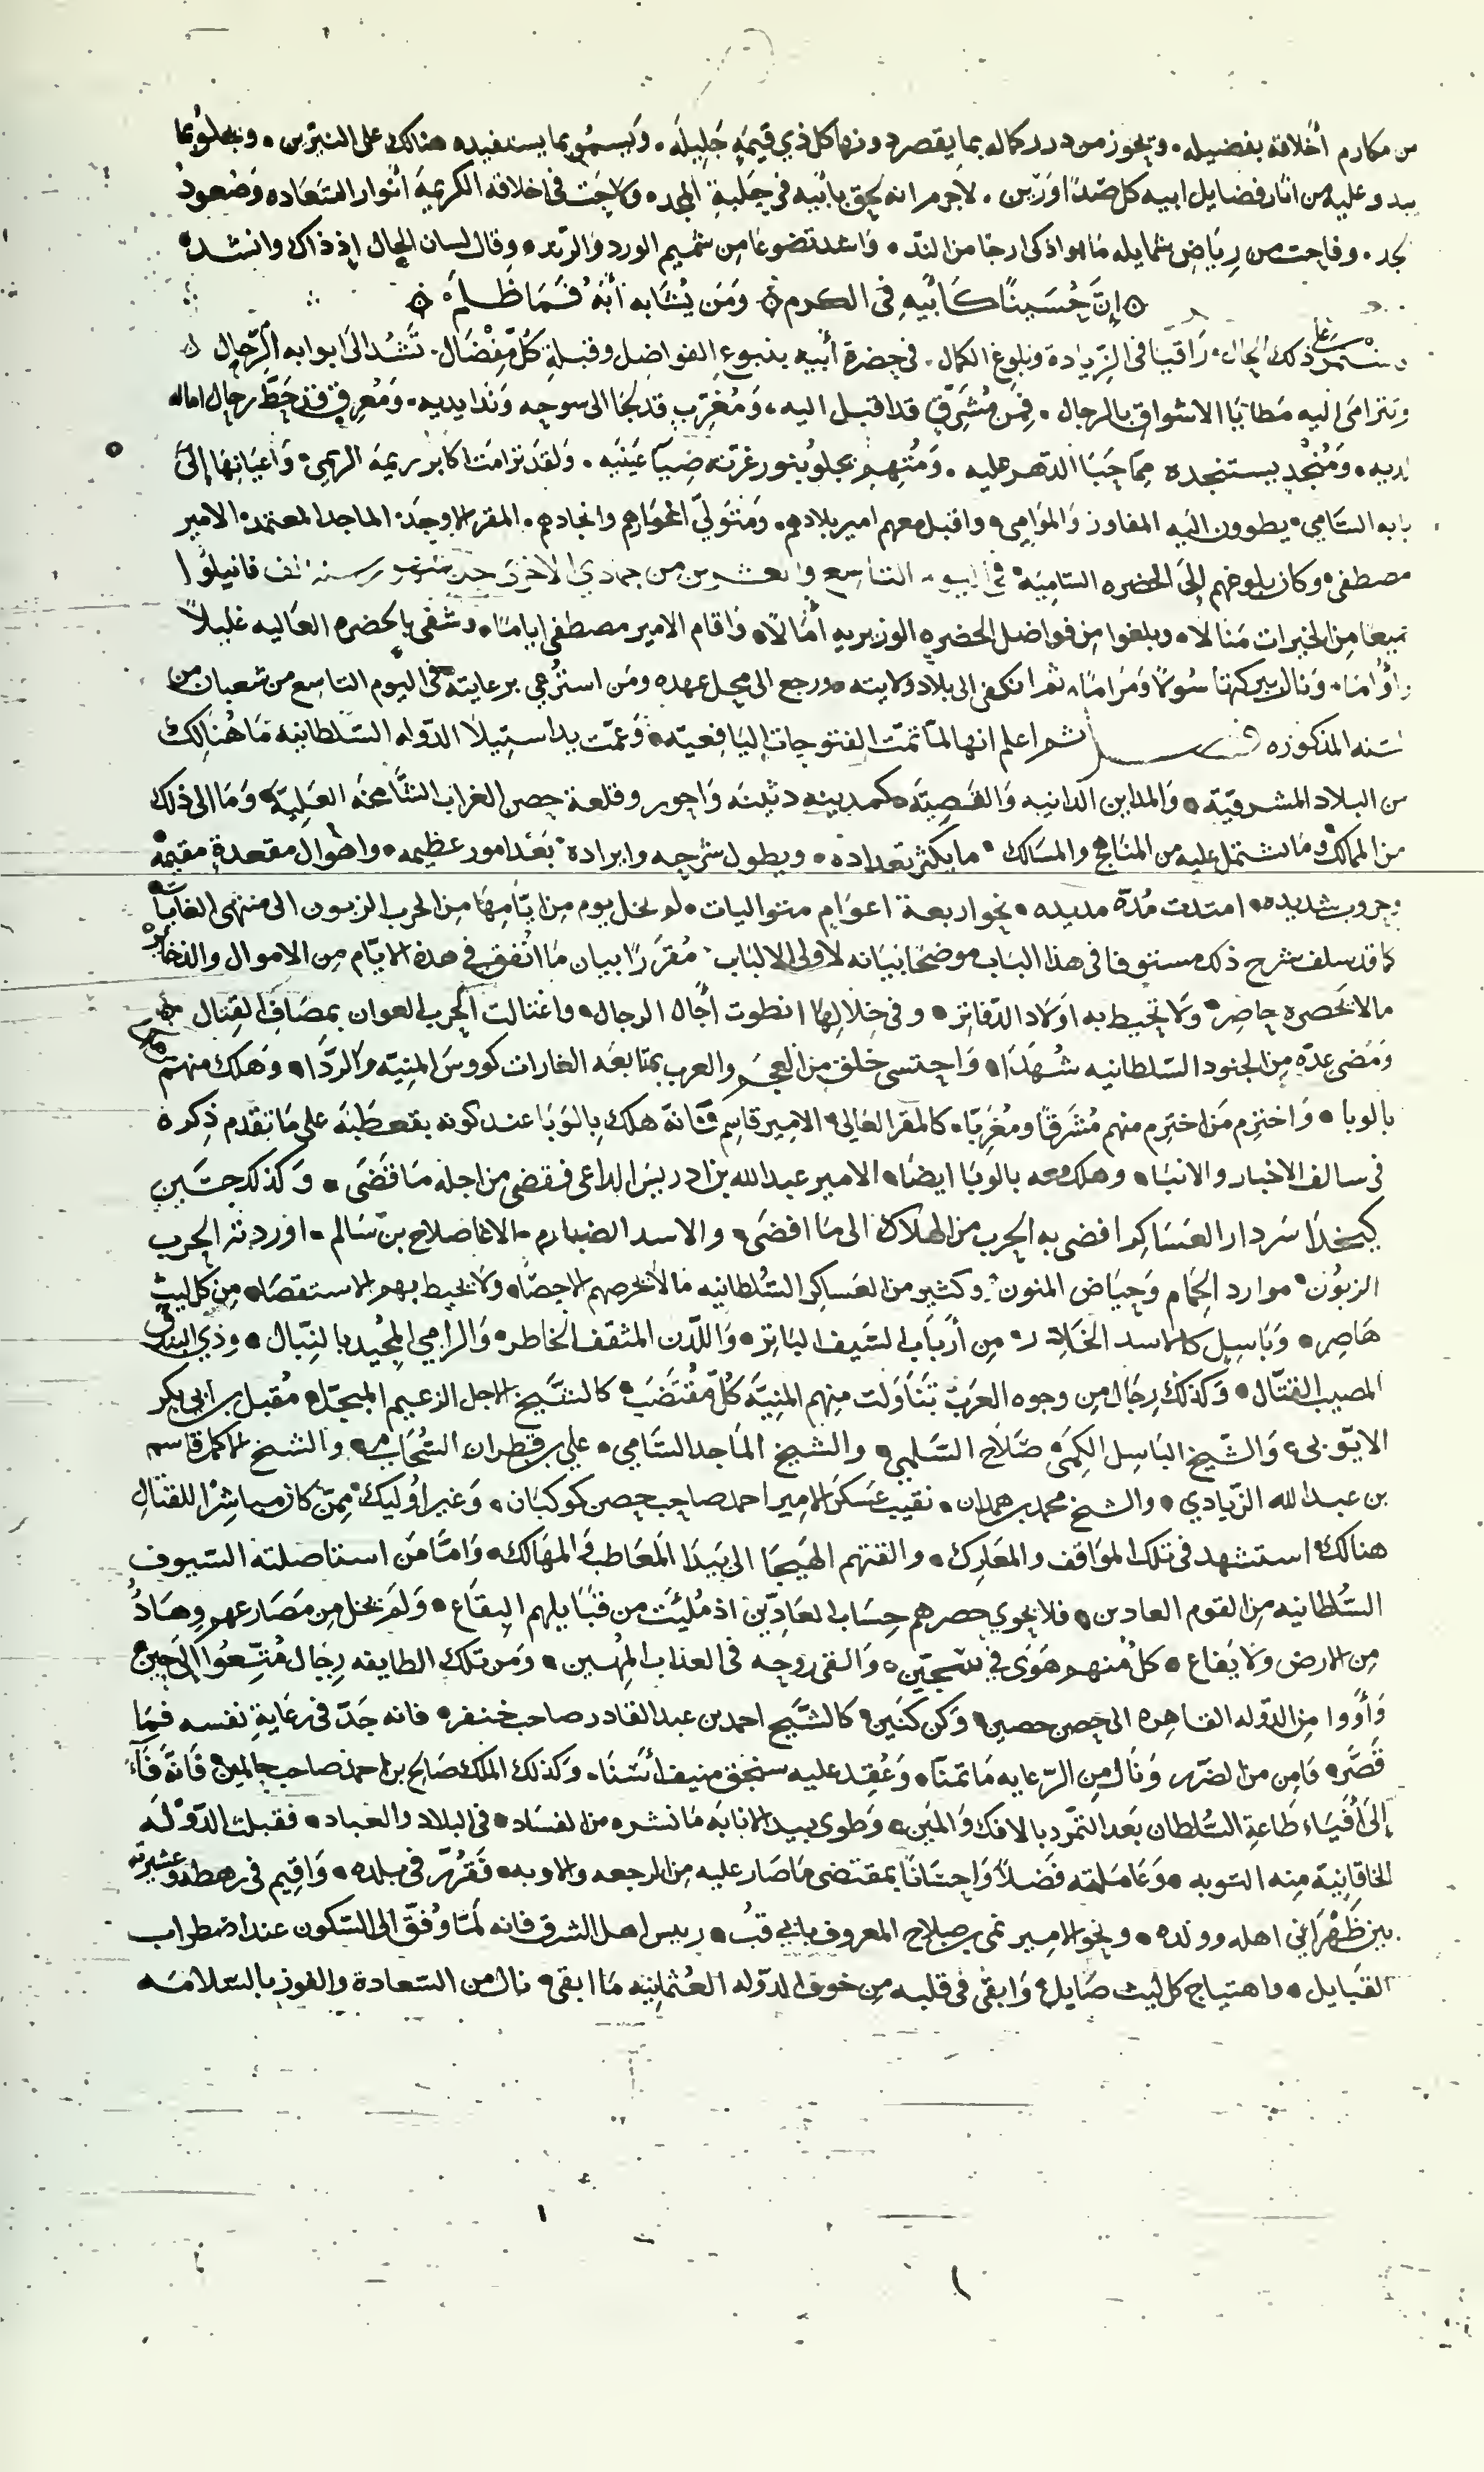 من مكارم أخلاقه بفضيله ۰ ويحوز من درر كماله بما يقصر دونها كل ذي قيمة جليله ۰ ويسمو بما يستفيده هنالك على النيّرين ۰ ويجلو بما
يبدو عليه من اثار فضايل ابيه كل صدًا ورين ۰ لاجرم انه لحق بابيه في حلبة المجد ۰ ولاحت في اخلاقه الكريمة أنوار السعاده وصعود
لجد ۰ وفاحت من رياض شمايله ما هو اذكى ارجا من الند ۰ واشد تضوعا من شميم الورد والرند ۰ وقال لسان الحال اذ ذاك وانشد
إنّ حُسينًا كأبيهِ في الكرم ۰ ومَن يُشابه أبَهُ فما ظلم
على ذلك الحال ۰ راقيا في الزيادة وبلوغ الكمال ۰ في حضرة أبيه ينبوع الفواضل وقبلة كل مفضال ۰ تشد الى ابوابه الرحال
وتترامى اليه مطايا الاشواق بالرجال ۰ فمن مشرق قد اقبل اليه ۰ ومغرب قد لجا الى سوحه وندا يديه ۰ ومعرق قد حط رحال اماله
لديه ۰ ومُنجد يستنجده مما جنا الدهر عليه ۰ ومتهم يجلو بنور غرته ضيآ عينيه ۰ ولقد ترامت اكابر ريمة الريمي ۰ واعيانها إلى
بابه السامي ۰ يطوون اليه المفاوز والموامي ۰ واقبل معهم امير بلادهم ۰ ومتولي اغوارهم وانجادهم ۰ المقر الاوحد ۰ الماجد المعتمد ۰ الامير
مصطفى ۰ وكان بلوغهم إلى الحضره الساميه ۰ في اليوم التاسع والعشرين من جمادى الاخرى سنة الف فانيلوا
جميعا من الخيرات منالا ۰ وبلغوا من فواضل الحضره الوزيريه أمالا ۰ واقام الامير مصطفى اياما ۰ وشفى بالحضرة العاليه غليلاً
واواما ۰ ونال ببركتها سولا ومراما ۰ ثم انكفى إلى بلاد ولايته ۰ ورجع الى محل عهده ومن استرعي برعايته ۰ في اليوم التاسع من شعبان من
السنه المذكوره ثم اعلم انها لما تمت الفتوحات اليافعيه ۰ وعمت يد استيلا الدوله السلطانيه ما هنالك
من البلاد المشرقيه ۰ والمداين الدانيه والقصيه ۰ كمدينه دثينه واحور وقلعة حصن الغراب الشامخه العليه ۰ وما الى ذلك
من الممالك وما اشتمل عليه من المناهج والمسالك ۰ ما يكثر تعداده ۰ ويطول شرحه وايراده ۰ بعد امور عظيمه ۰ واهوال مقعدة مقيمه
وحروب شديده ۰ امتدت مُدّة مديده ۰ نحو اربعة اعوام متواليات ۰ لم يخل يوم من ايامها من الحرب الزبون الى منتهى الغايات
كما قد سلف شرح ذلك مستوفا في هذا الباب موضحا بيانه لاولى الالباب ۰ مقررا بيان ما اتفق في هذه الايام من الاموال والذخاير
مالا يحصره حاصر ۰ ولا تحيط به اولاد الدفاتر ۰ وفي خلالها انطوت أجال الرجال ۰ واغتالت الحرب العوان بمصاف القتال
ومضى عدّة من الجنود السلطانيه شهدا ۰ واحتسى خلق من العجم والعرب بمتابعه الغارات كووس المنيه والردا ۰ وهلك منهم
بالوبا ۰ واخترم من اخترم منهم مشرقا ومغربا ۰ كالمقر العالي ۰ الامير قاسم فانه هلك بالوبا عند كونه بقعطبه على ما تقدم ذكره
في سالف الاخبار والانبا ۰ وهلك معه بالوبا ايضا ۰ الامير عبد الله بن ادريس الداعى فقضى من اجله ما قضى ۰ وكذلك حسين
كيخدا سردار العساكر افضى به الحرب من الهلاك الى ما افضى ۰ والاسد الضبارم ۰ الاغا صلاح بن سالم ۰ اوردته الحرب
الزبون ۰ موارد الحمام وحياض المنون ۰ وكثير من العساكر السلطانيه مالا يحرصهم الاحصا ۰ ولا يحيط بهم الاستقصا ۰ من كل ليث
هاصر ۰ وباسل كالاسد الخادر ۰ من أرباب السيف الباتر ۰ واللدن المثقف الخاطر ۰ والرامي المجيد بالنبال ۰ وذي البندق
المصيب القتال ۰ وكذلك رجال من وجوه العرب تناولت منهم المنية كل مقتضب ۰ كالشيخ الاجل الزعيم المبجل ۰ مُقبل بن ابي بكر
الايوبي ۰ والشيخ الباسل الكمي ۰ صلاح السلمي ۰ والشيخ الماجد السامي ۰ علي بن قطران السحامي ۰ والشيخ الاكمل قاسم
بن عبد الله الزيادي ۰ والشيخ محمد بن همدان ۰ نقيب عسكر الامير احمد صاحب حصن كوكبان ۰ وغير اوليك ممن كان مباشرا للقتال
هنالك استشهد في تلك المواقف والمعارك ۰ والقتهم الهيجا الى بيدا المعاطب في المهالك ۰ وامّا من استاصلته السيوف
السلطانيه من القوم العادين ۰ فلا يحوي حصرهم حساب العادّين اذ مُليت من قبايلهم البقاع ۰ ولم يخل من مصارعهم وهادُ
من الارض ولا يفاع ۰ كلُ منهم هوى في سجين ۰ والقى روحه في العذاب المهين ۰ ومن تلك الطايفه رجال مُتّعُوا الى حين
وأووا من الدوله القاهره الى حصن حصين ۰ وكن كنين ۰ كالشيخ احمد بن عبد القادر صاحب خنفر ۰ فانه جدّ في رعاية نفسه فما
قصّر ۰ فامن من الضرر ونال من الرعايه ما تمنّا ۰ وعُقد عليه سنجق منيف أسنا ۰ وكذلك الملك صالح بن احمد صاحب حالمين ۰ فانه فآء
إلى أفياء طاعة السلطان بعد التمرد بالافك والمين ۰ وطوى بيد الانابه ما نشره من الفساد ۰ في البلاد والعباد ۰ فقبلت الدوله
الخاقانيه منه التوبه ۰ وعاملته فضلا واحسانا بمقتضى ما صار عليه من الرجعه والاوبه ۰ فقُرّر في بلده ۰ واقيم في رهطه وعشيرته
بين ظهراني اهله وولده ۰ ونحو الامير نمي بن صلاح المعروف بابي قُب ۰ رييس اهل الشرق فانه لما وُفّق الى السكون عند اضطراب
القبايل ۰ واهتياج كل ليث صايل ۰ وابقى في قلبه من خوف الدوله العثمانيه ما ابقى ۰ نال من السعادة والفوز بالسلامه